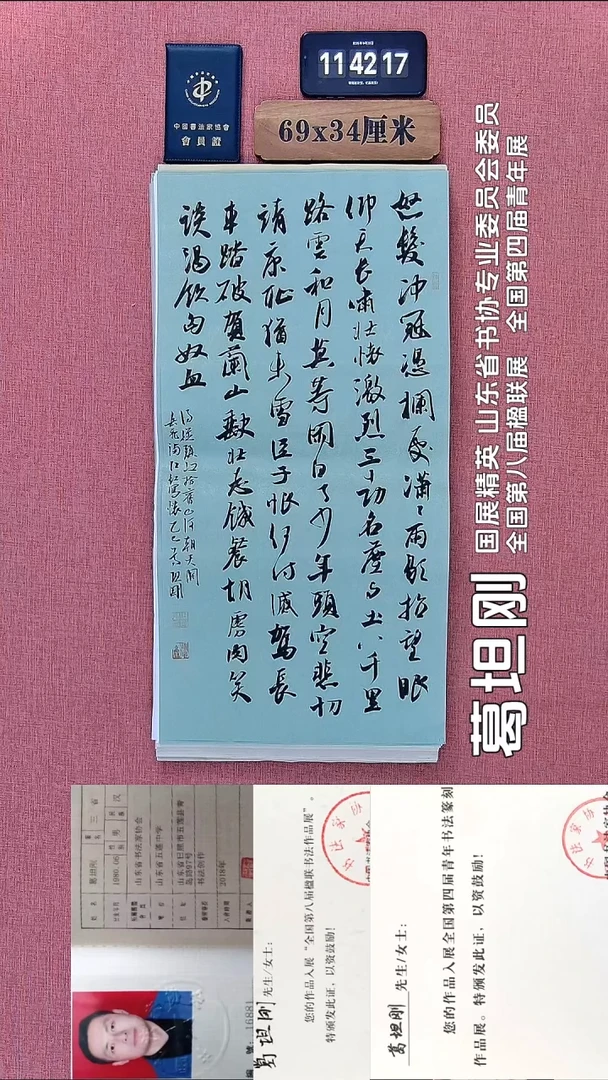 11 42 17
中國書法家協會
會員證
69x34厘米
怒髮沖冠憑欄處瀟〻雨歇抬望眼
仰天長嘯壯懷激烈三十功名塵与土八千里
路雲和月莫等閒白了少年頭空悲切
靖康恥猶未雪臣子恨何時滅駕長
車踏破賀蘭山缺壯志饑餐胡虜肉笑
談渴飲匈奴血
待從頭收拾舊山河朝天闕
岳飛滿江紅寫懷乙巳葛坦刚
葛坦刚
国展精英 山东省书协专业委员会委员
全国第八届楹联展 全国第四届青年展
姓名 葛坦刚
山东省书法家协会
山东省五莲中学
2018年
16881
葛坦刚 先生/女士：
您的作品入展“全国第八届楹联书法作品展”。
特颁发此证，以资鼓励！
葛坦刚 先生/女士：
您的作品入展全国第四届青年书法篆刻
作品展。特颁发此证，以资鼓励！